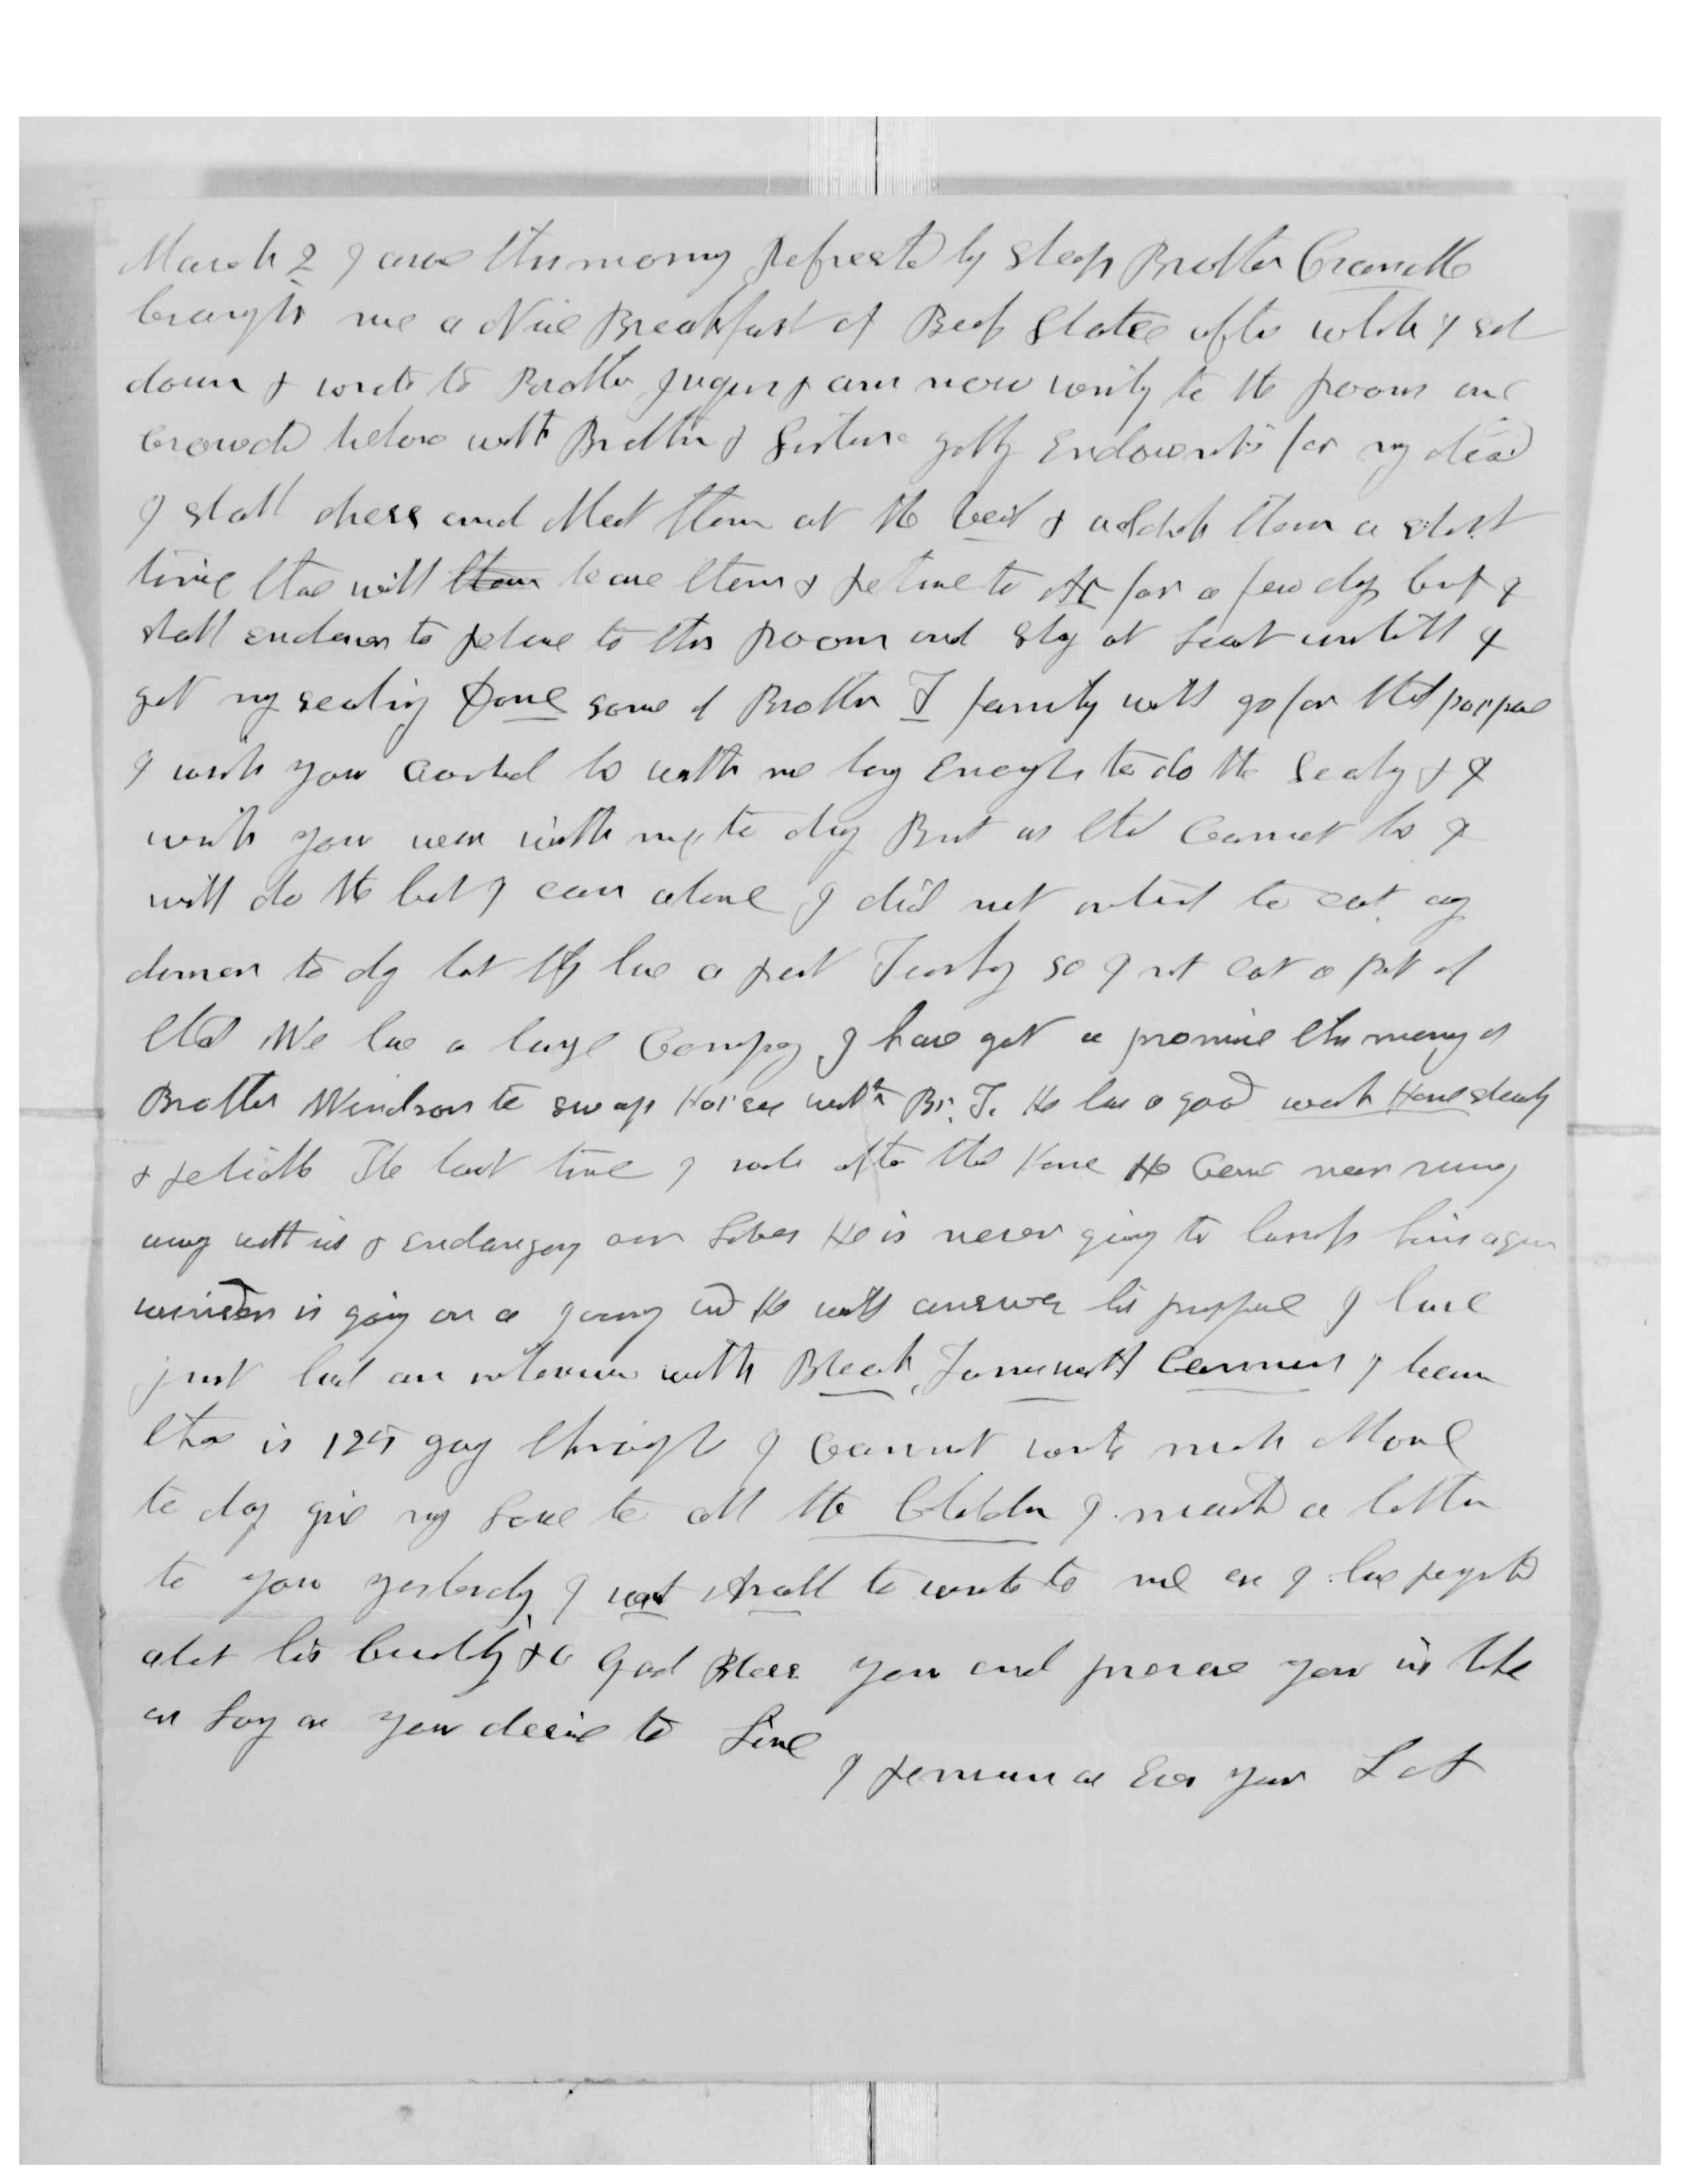 March 2 I arose this morning Refreshed by Sleep Brother
brought me a Nice Breakfast of Beef State after which I set
down & wrote to Brother & am now writing to the Room are
Crowded below with Brother & Sisters getting Endowments for my dead
I shall dress and Meet them at the veil & address them a short
time then will leave them & Retire to for a few days but I
shall endeavor to Retire to this Room and Stay at least untill I
get my sealing Done some of Brother T family will go for that purpose
I wish you Could be with me long Enough to do the Sealing & I
wish you were with me to day But as this Cannot be I
will do the best I can alone I did not intend to eat any
dinner to day but they have a great Turkey so I must eat a part of
that We have a large Company I have got a promise this morning of
Brother Windsor to swap Horses with Br. T. He has a good work Horse steady
& Reliable The last time I rode after this Horse He Came near runing
away with us & Endangering our Lives He is never going to harness him again
winsor is going on a Journey and He will answer his purpose I have
just had an interview with Black, Cannons I learn
there is 125 going through I Cannot write much More
to day give my Love to all the Children I mailed a letter
to you yesterday I want to write to me as I have
about his &c God Bless you and preserve you in life
as Long as you desire to Live
I Remain as Ever your